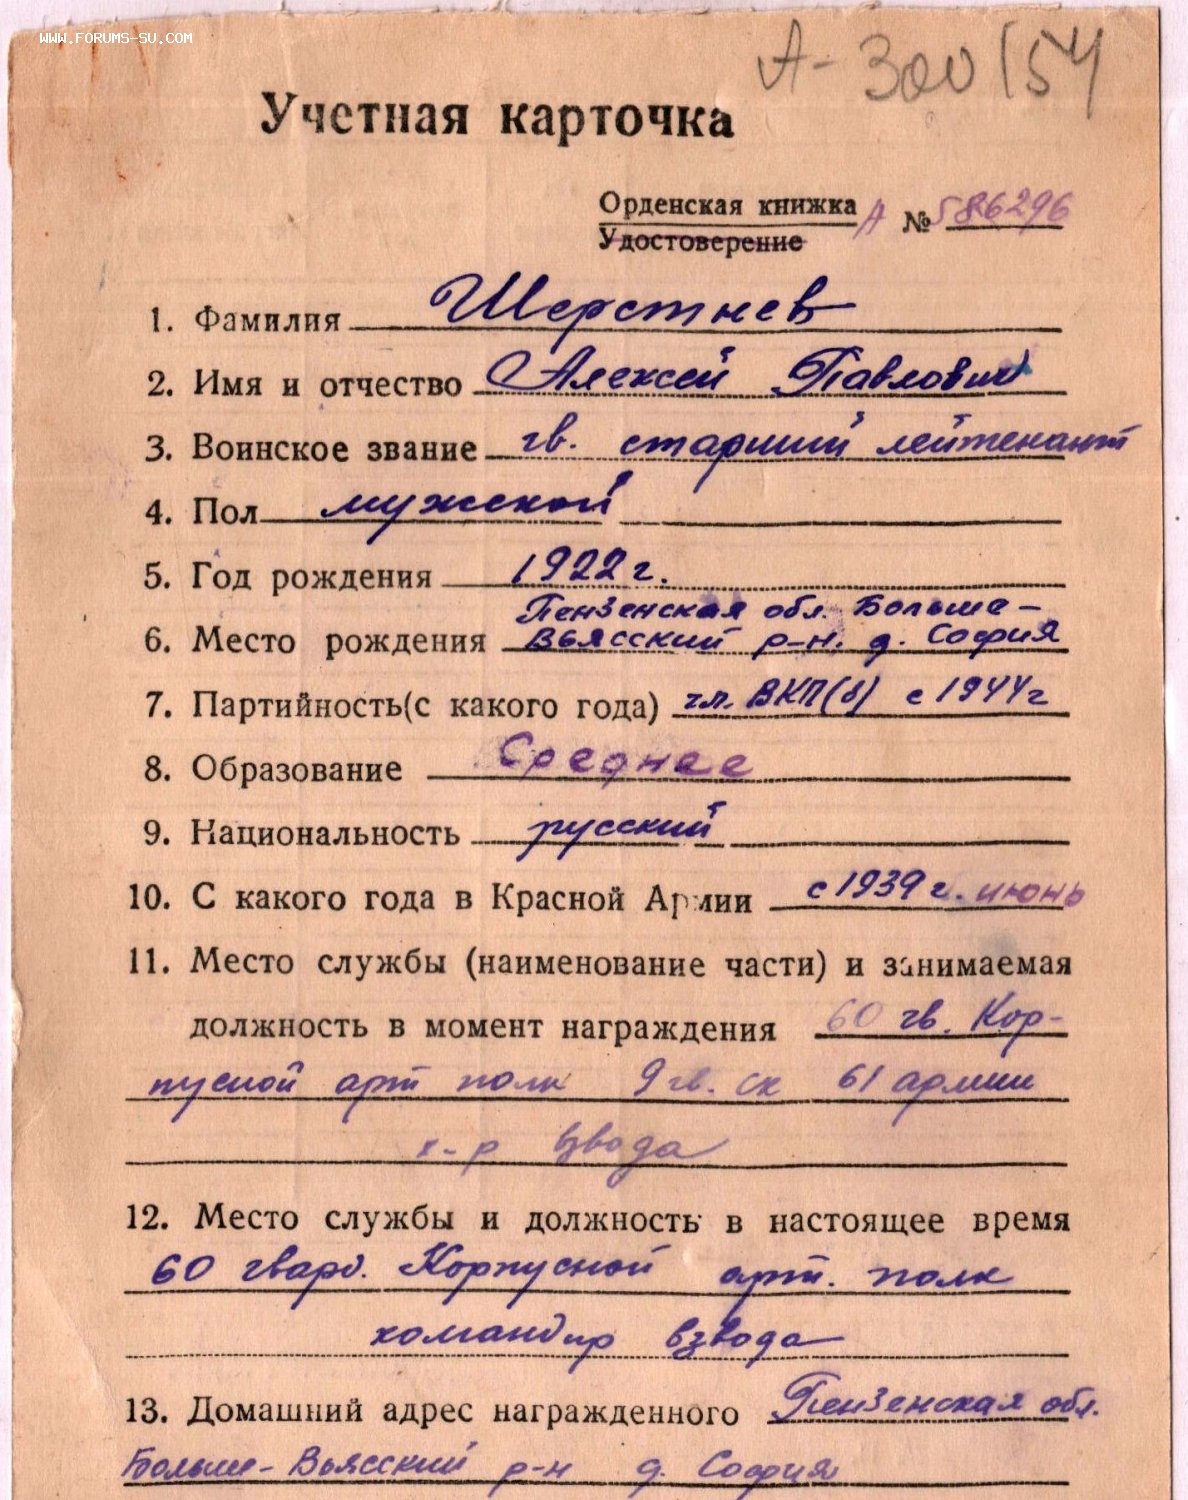 WWW.FORUMS-SU.COM
А-300154
Учетная карточка
Орденская книжка А № 586296
Удостоверение
1. Фамилия Шерстнев
2. Имя и отчество Алексей Павлович
3. Воинское звание гв. старший лейтенант
4. Пол мужской
5. Год рождения 1922 г.
Пензенская обл. Больше-
6. Место рождения Вьясский р-н. д. София
7. Партийность (с какого года) чл. ВКП(б) с 1944 г
8. Образование Среднее
9. Национальность русский
10. С какого года в Красной Армии с 1939 г. июнь
11. Место службы (наименование части) и занимаемая
должность в момент награждения 60 гв. Кор-
пусной арт полк 9 гв. ск 61 армии
к-р взвода
12. Место службы и должность в настоящее время
60 гвард. Корпусной арт. полк
командир взвода
13. Домашний адрес награжденного Пензенская обл.
Больше-Вьясский р-н д. София